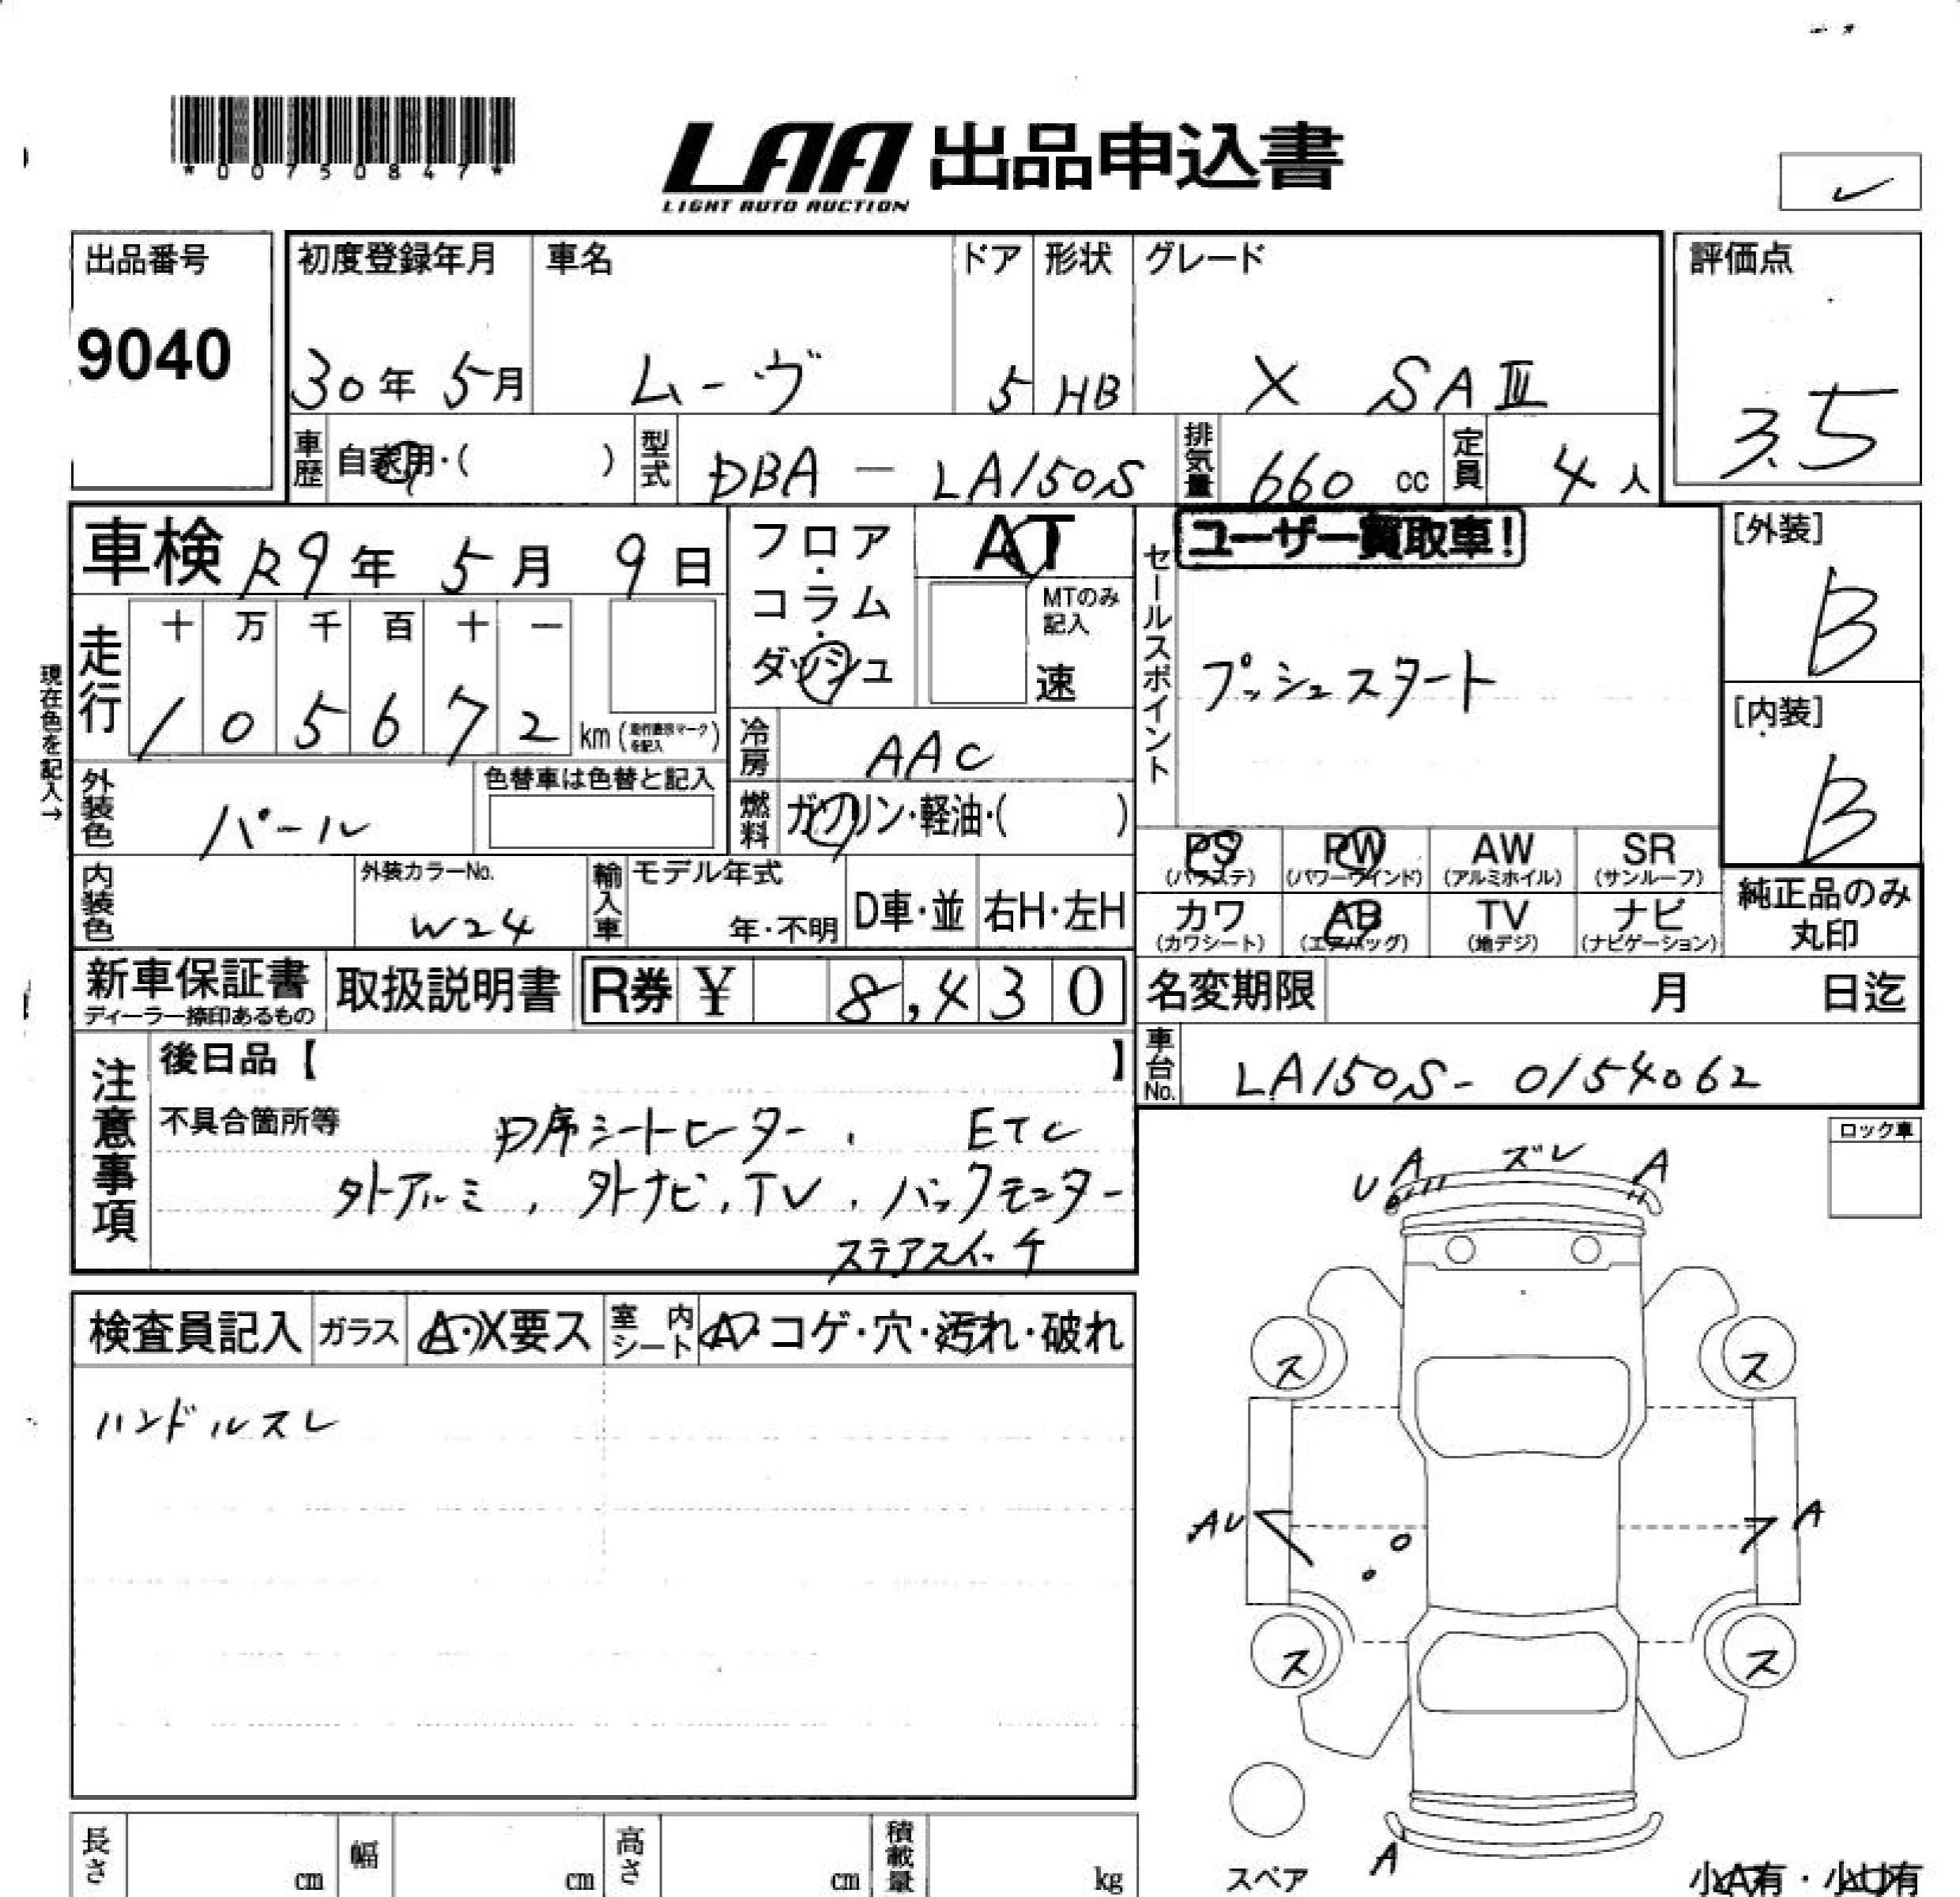 *00750847*
LAA 出品申込書
LIGHT AUTO AUCTION
出品番号
9040
初度登録年月 車名 ドア 形状 グレード
30年 5月 ムーヴ 5 HB X SAⅢ
評価点
3.5
車歴 自家用・( ) 型式 DBA - LA150S 排気量 660 cc 定員 4人
車検 R9年 5月 9日
フロア・コラム・ダッシュ
AT
MTのみ記入
速
セールスポイント
ユーザー買取車!
プッシュスタート
[外装]
B
[内装]
B
現在色を記入→
走行
十 万 千 百 十 一
1 0 5 6 7 2 km
冷房 AAC
外装色 パール
色替車は色替と記入
燃料 ガソリン・軽油・( )
内装色
外装カラーNo.
W24
輸入車 モデル年式
年・不明
D車・並 右H・左H
PS (パワステ) PW (パワーウインド) AW (アルミホイル) SR (サンルーフ)
カワ (カワシート) AB (エアバッグ) TV (地デジ) ナビ (ナビゲーション)
純正品のみ
丸印
新車保証書 取扱説明書 R券 ¥ 8,430
ディーラー捺印あるもの
名変期限 月 日迄
車台No. LA150S- 0154062
注意事項
後日品【 】
不具合箇所等
D席シートヒーター、 ETC
外アルミ、外ナビ、TV、バックモニター
ステアスイッチ
検査員記入 ガラス A・X要ス 室内シート A・コゲ・穴・汚れ・破れ
ハンドルスレ
ロック車
U A ズレ A
ス ス
AU A
ス ス
スペア
A
小A有・小U有
長さ cm 幅 cm 高さ cm 積載量 kg